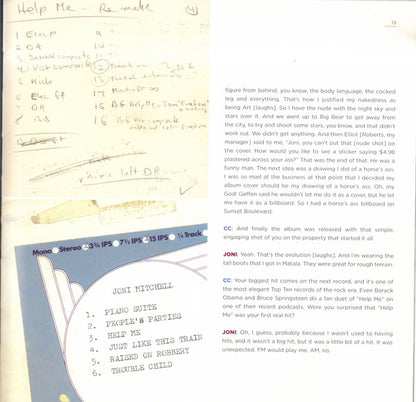 Help Me - Re-make
4
1
2
3
4
5
6
7
8
9
10
12
13
14
15 BG Help Me - Tom
16 BG
Mono Stereo 3¾ IPS 7½ IPS 15 IPS ¼ Track
JONI MITCHELL
1. PIANO SUITE
2. PEOPLE'S PARTIES
3. HELP ME
4. JUST LIKE THIS TRAIN
5. RAISED ON ROBBERY
6. TROUBLE CHILD
figure from behind, you know, the body language, the cocked
leg and everything. That's how I justified my nakedness as
being Art [laughs]. So I have the nude with the night sky and
stars over it. And we went up to Big Bear to get away from
the city, to try and shoot some stars, you know, and that didn't
work out. We didn't get anything. And then Elliot [Roberts, my
manager] said to me, "Joni, you can't put that [nude shot] on
the cover. How would you like to see a sticker saying $4.98
plastered across your ass?" That was the end of that. He was a
funny man. The next idea was a drawing I did of a horse's ass.
I was so mad at the business at that point that I decided my
album cover should be my drawing of a horse's ass. Oh, my
God! Geffen said he wouldn't let me do it as a cover, but he let
me have it as a billboard. So I had a horse's ass billboard on
Sunset Boulevard.
CC: And finally the album was released with that simple,
engaging shot of you on the property that started it all.
JONI: Yeah. That's the evolution [laughs]. And I'm wearing the
tall boots that I got in Matala. They were great for rough terrain.
CC: Your biggest hit comes on the next record, and it's one of
the most elegant Top Ten records of the rock era. Even Barack
Obama and Bruce Springsteen do a fan duet of "Help Me" on
one of their recent podcasts. Were you surprised that "Help
Me" was your first real hit?
JONI: Oh, I guess, probably because I wasn't used to having
hits, and it wasn't a big hit, but it was a little bit of a hit. It was
unexpected. FM would play me. AM, no.